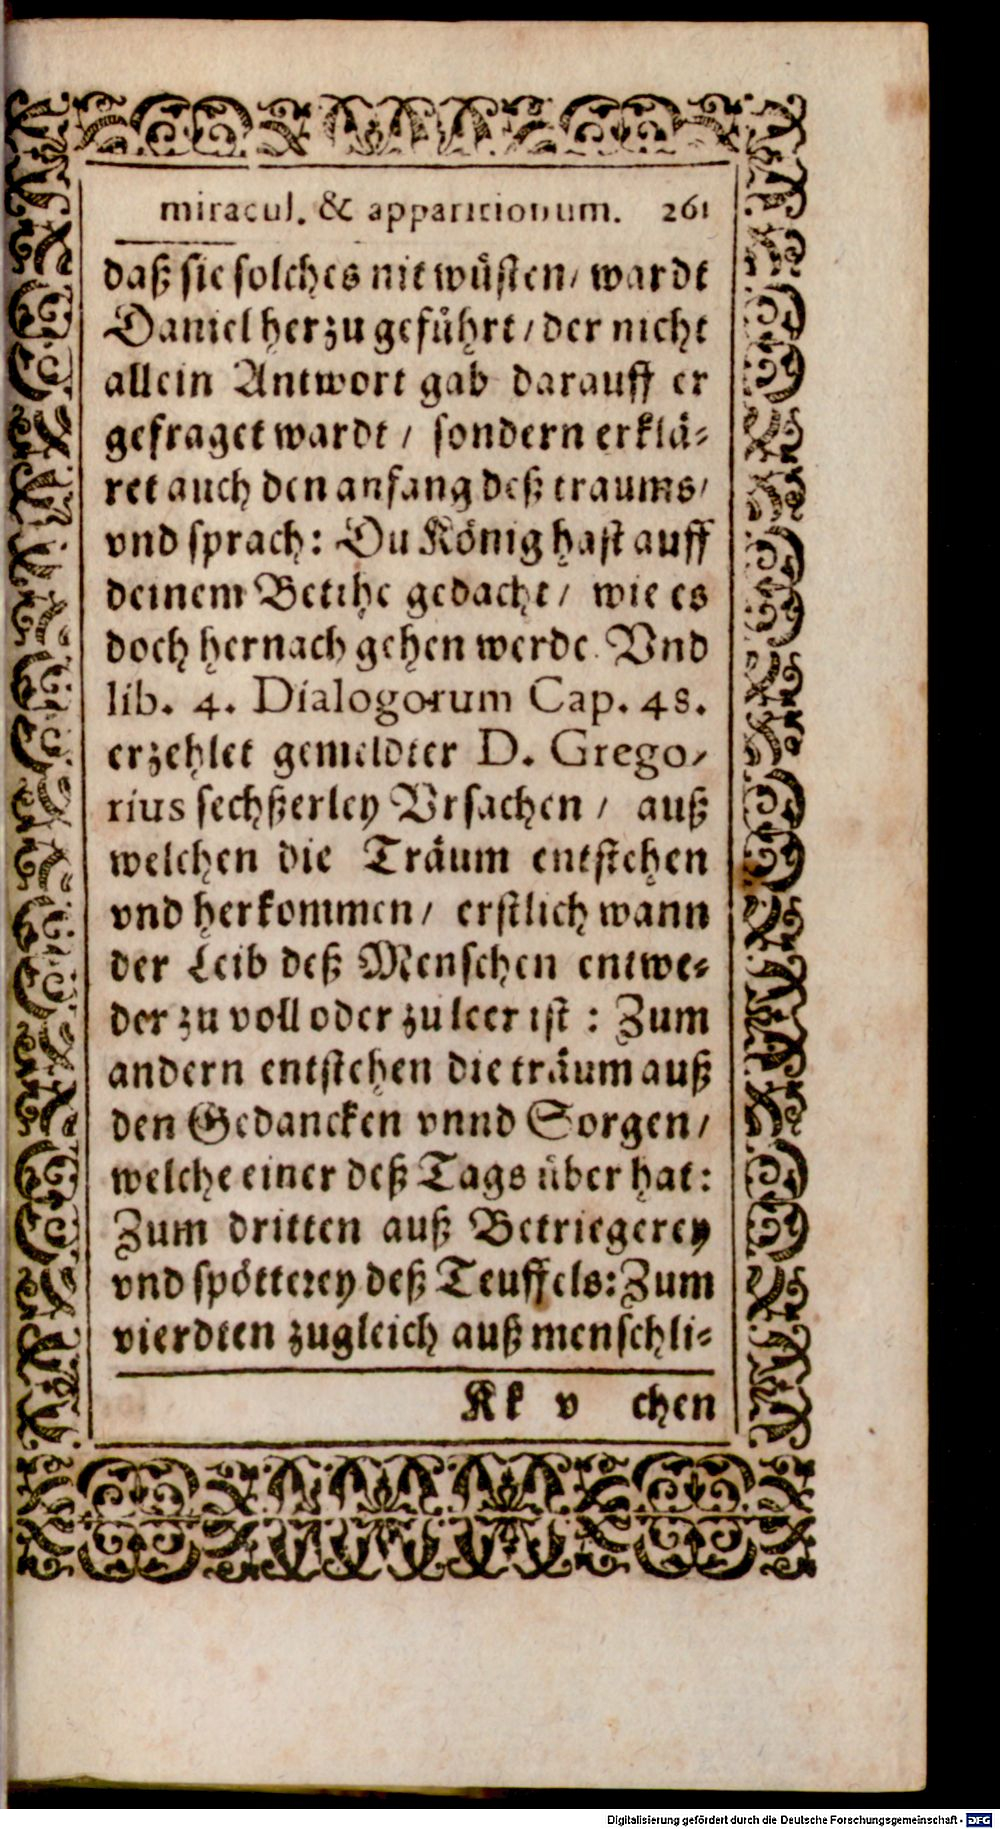 miracul. & apparitionum. 261
daß sie solches nit wüsten/ wardt
Daniel herzu geführt/ der nicht
allein Antwort gab darauff er
gefraget wardt / sondern erklä-
ret auch den anfang deß traums/
vnd sprach: Du König hast auff
deinem Betthe gedacht/ wie es
doch hernach gehen werde. Vnd
lib. 4. Dialogorum Cap. 48.
erzehlet gemeldter D. Grego-
rius sechßerley Vrsachen / auß
welchen die Träum entstehen
vnd herkommen/ erstlich wann
der Leib deß Menschen entwe-
der zu voll oder zu leer ist : Zum
andern entstehen die träum auß
den Gedancken vnnd Sorgen/
welche einer deß Tags über hat:
Zum dritten auß Betriegerey
vnd spötterey deß Teuffels: Zum
vierdten zugleich auß menschli-
Kk v chen
Digitalisierung gefördert durch die Deutsche Forschungsgemeinschaft - DFG